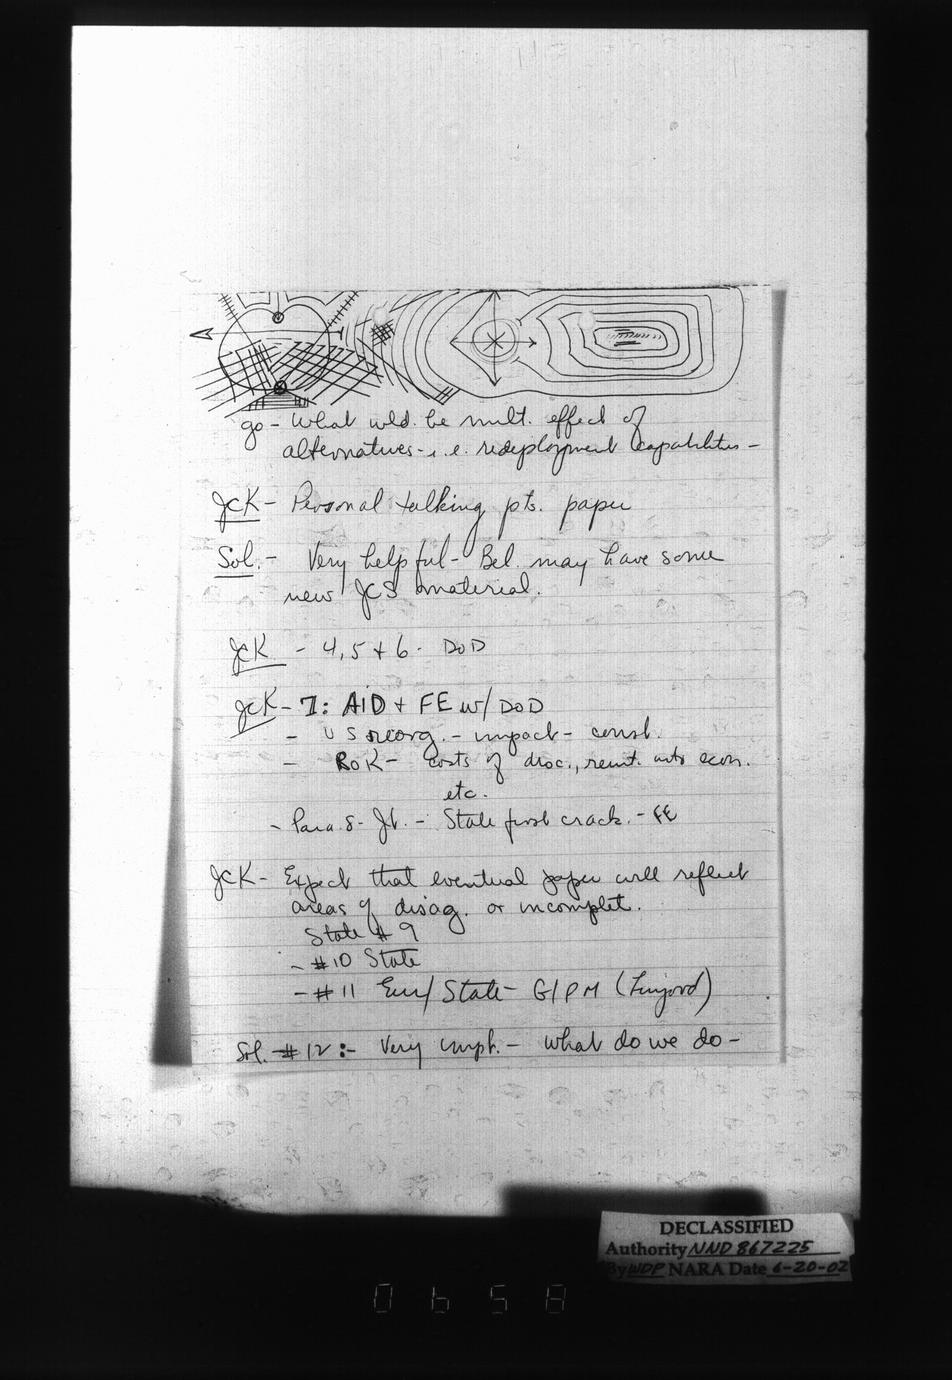 go - What wld. be mult. effect of
alternatives - i.e. redeployment capabilities -
JCK - Personal talking pts. paper
Sol. - Very helpful - Bel. may have some
new JCS material.
JCK - 4, 5 + 6 - DOD
JCK - 7: AID + FE w/ DOD
- US reorg. - impact - const.
- ROK - costs of disc., reint. into econ.
etc.
- Para. 8 - Jt. - State first crack. - FE
JCK - Expect that eventual paper will reflect
areas of disag. or incomplet.
State # 9
- #10 State
- #11 Eur/State - G/PM
Sol. #12 :- Very imph. - What do we do -
DECLASSIFIED
Authority NND 867225
By WDP NARA Date 6-20-02
0658